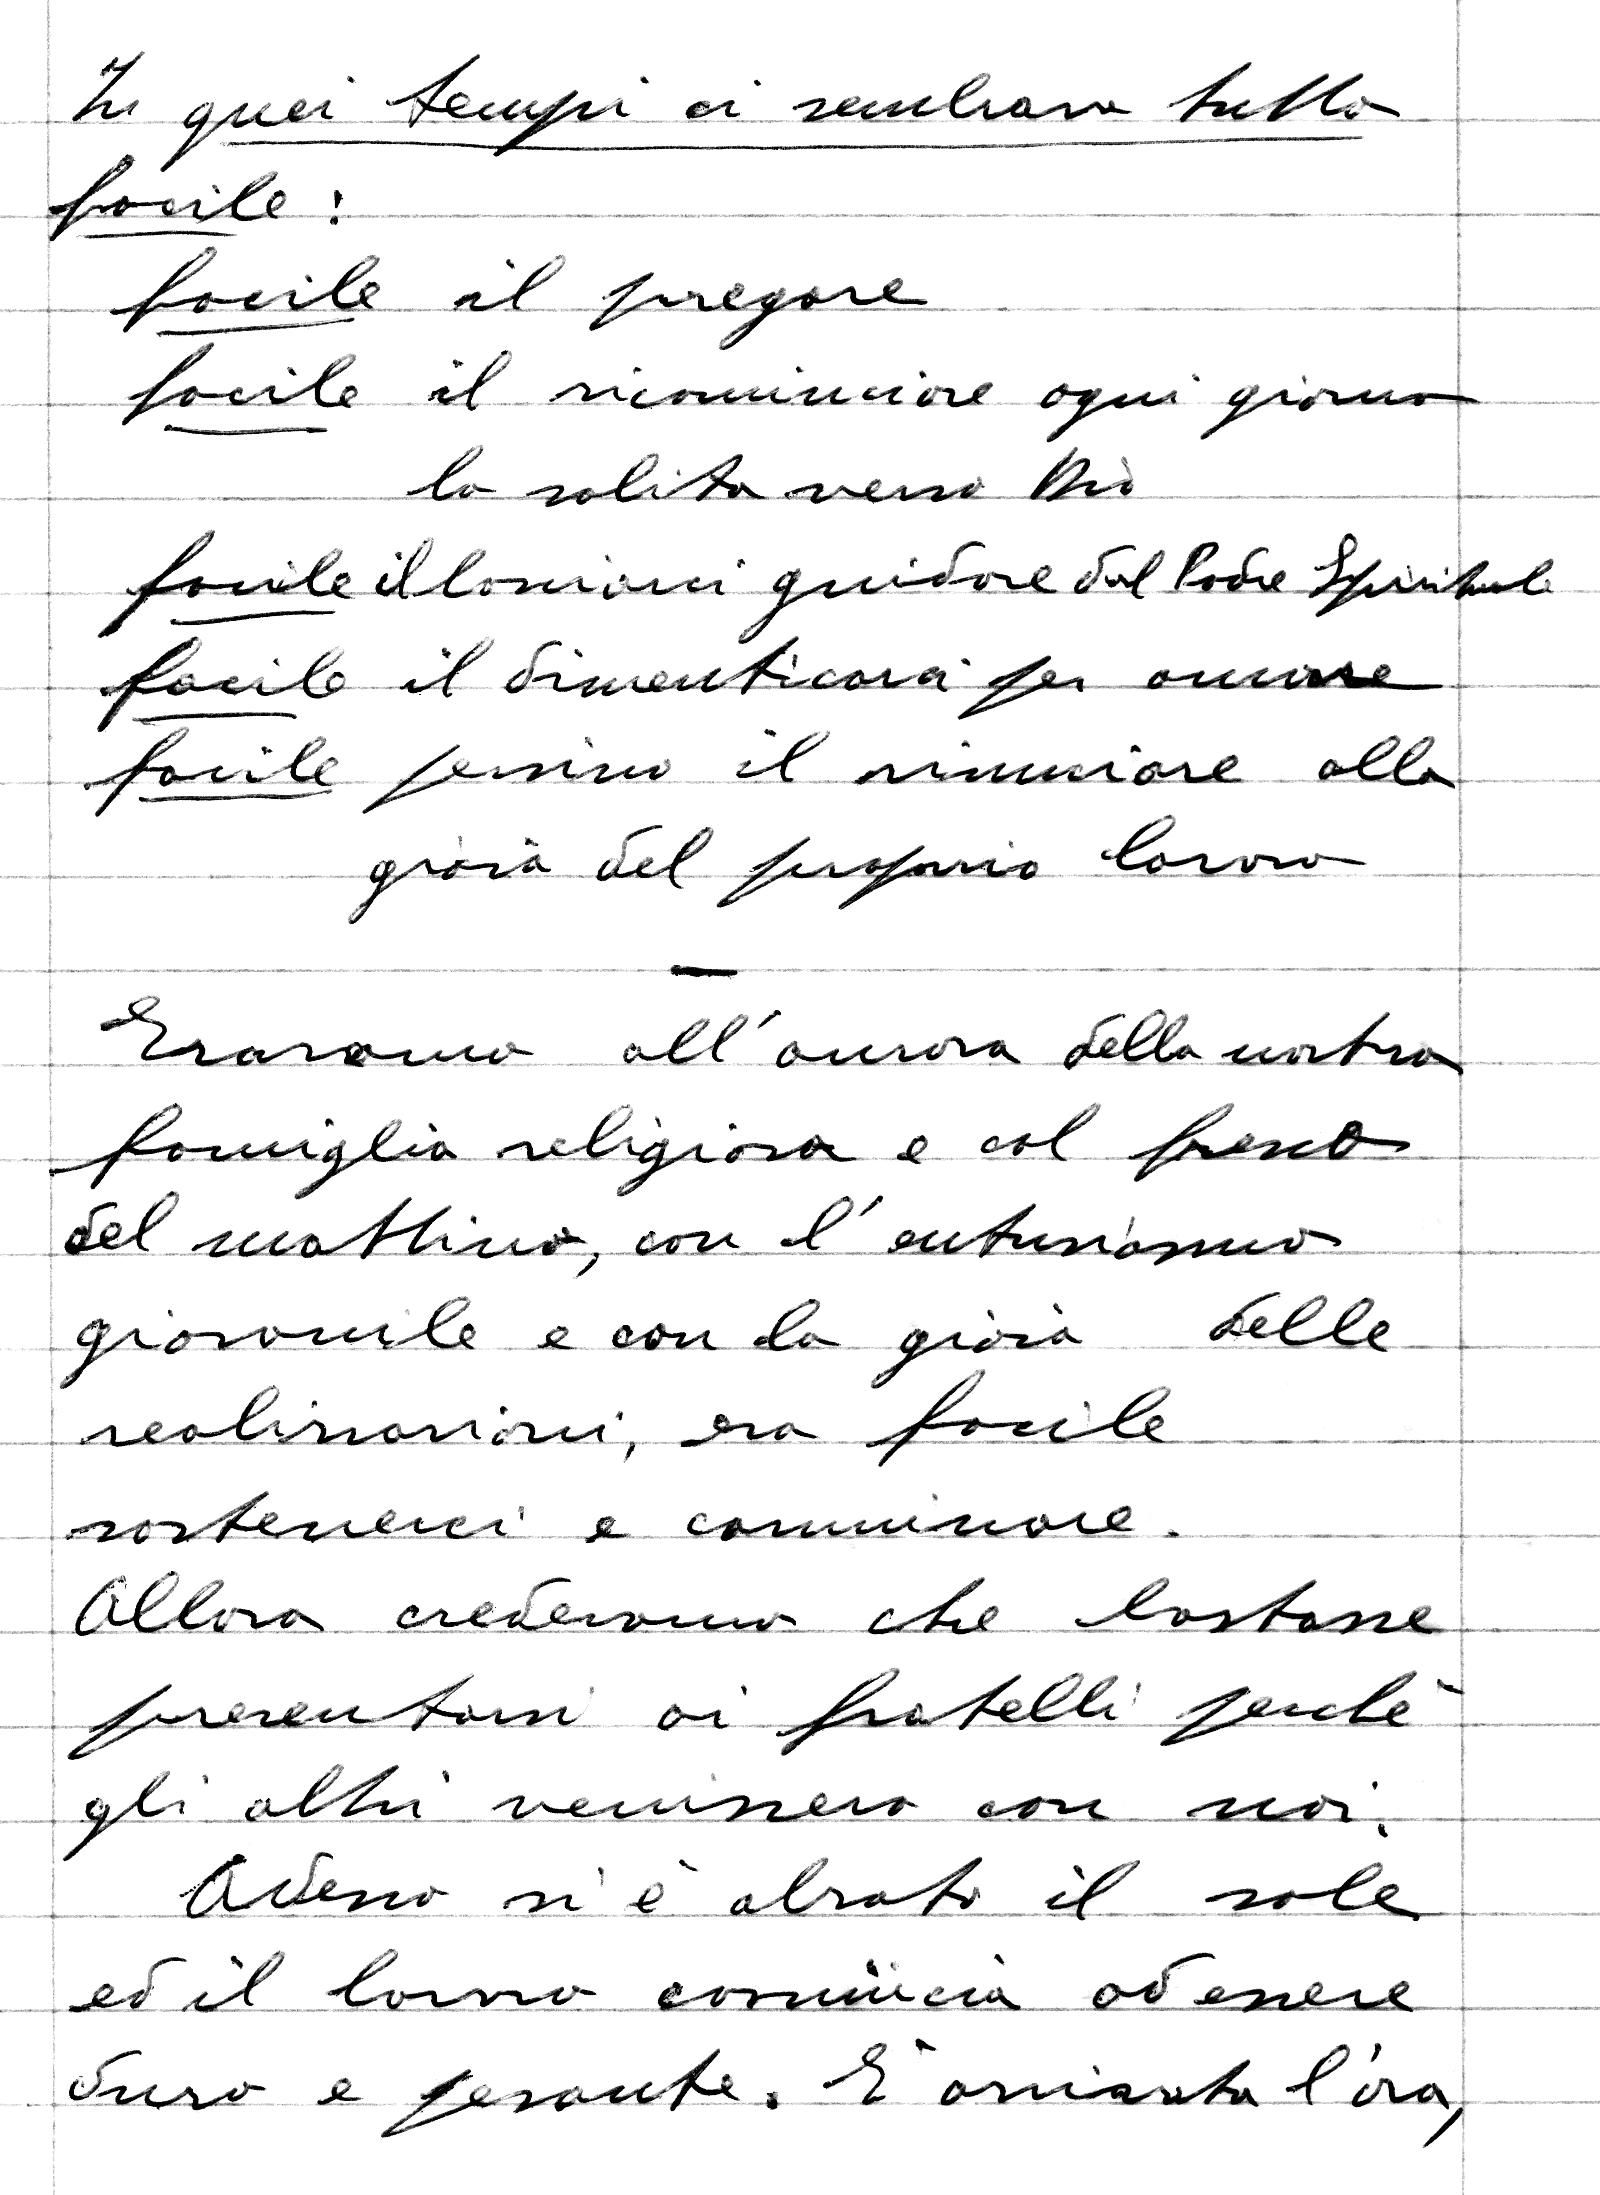 In quei tempi ci sembrava tutto
facile:
facile il pregare
facile il ricominciare ogni giorno
la salita verso Dio
facile il lasciarci guidare dal Padre Spirituale
facile il dimenticarci per amore
facile persino il rinunciare alla
gioia del proprio lavoro
—
Eravamo all'aurora della nostra
famiglia religiosa e col fresco
del mattino, con l'entusiasmo
giovanile e con la gioia delle
realizzazioni, era facile
sostenerci e camminare.
Allora credevamo che bastasse
presentarsi ai fratelli perchè
gli altri venissero con noi.
Adesso si è alzato il sole
ed il lavoro comincia ad essere
duro e pesante. E' arrivata l'ora,